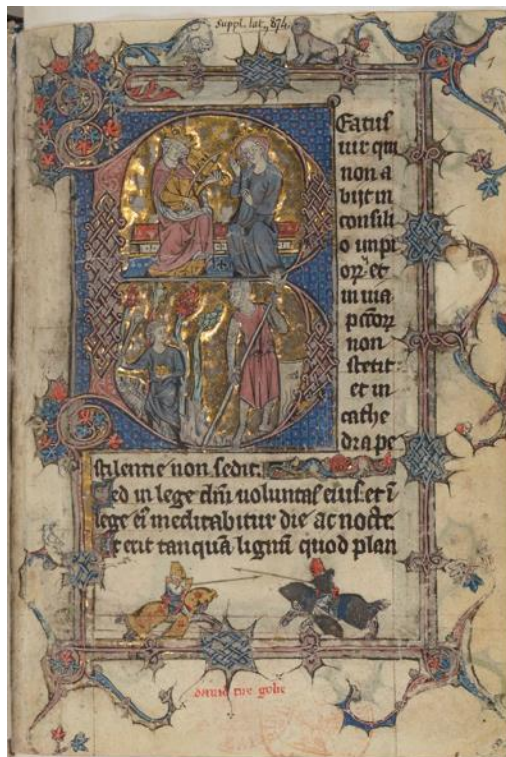 Suppl. lat. 874.
1
Eatus
uir qui
non a
bijt in
consili
o impi
oꝝ et
in uia
pctoꝝ
non
stetit
et in
cathe
dra pe
stilentie non sedit.
Sed in lege dnı uoluntas eius et ı̄
lege eı meditabitur die ac nocte.
Et erit tanquā lignū quod plan
dauid tue golie